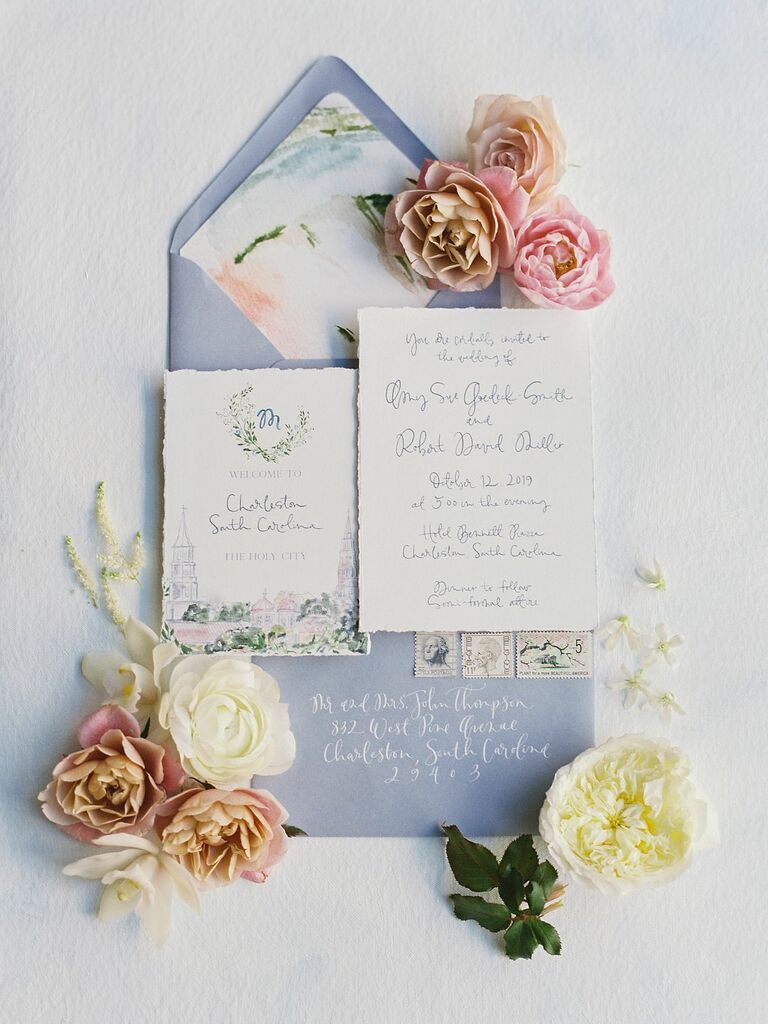 M
WELCOME TO
Charleston
South Carolina
THE HOLY CITY
You are cordially invited to
the wedding of
Amy Sue Goedek-Smith
and
Robert David Miller
October 12, 2019
at 5:00 in the evening
Hotel Bennett Piazza
Charleston, South Carolina
Dinner to follow
Semi-formal attire
5¢
PLANT for a more BEAUTIFUL AMERICA
Mr and Mrs. John Thompson
832 West Pine Avenue
Charleston, South Carolina
29403